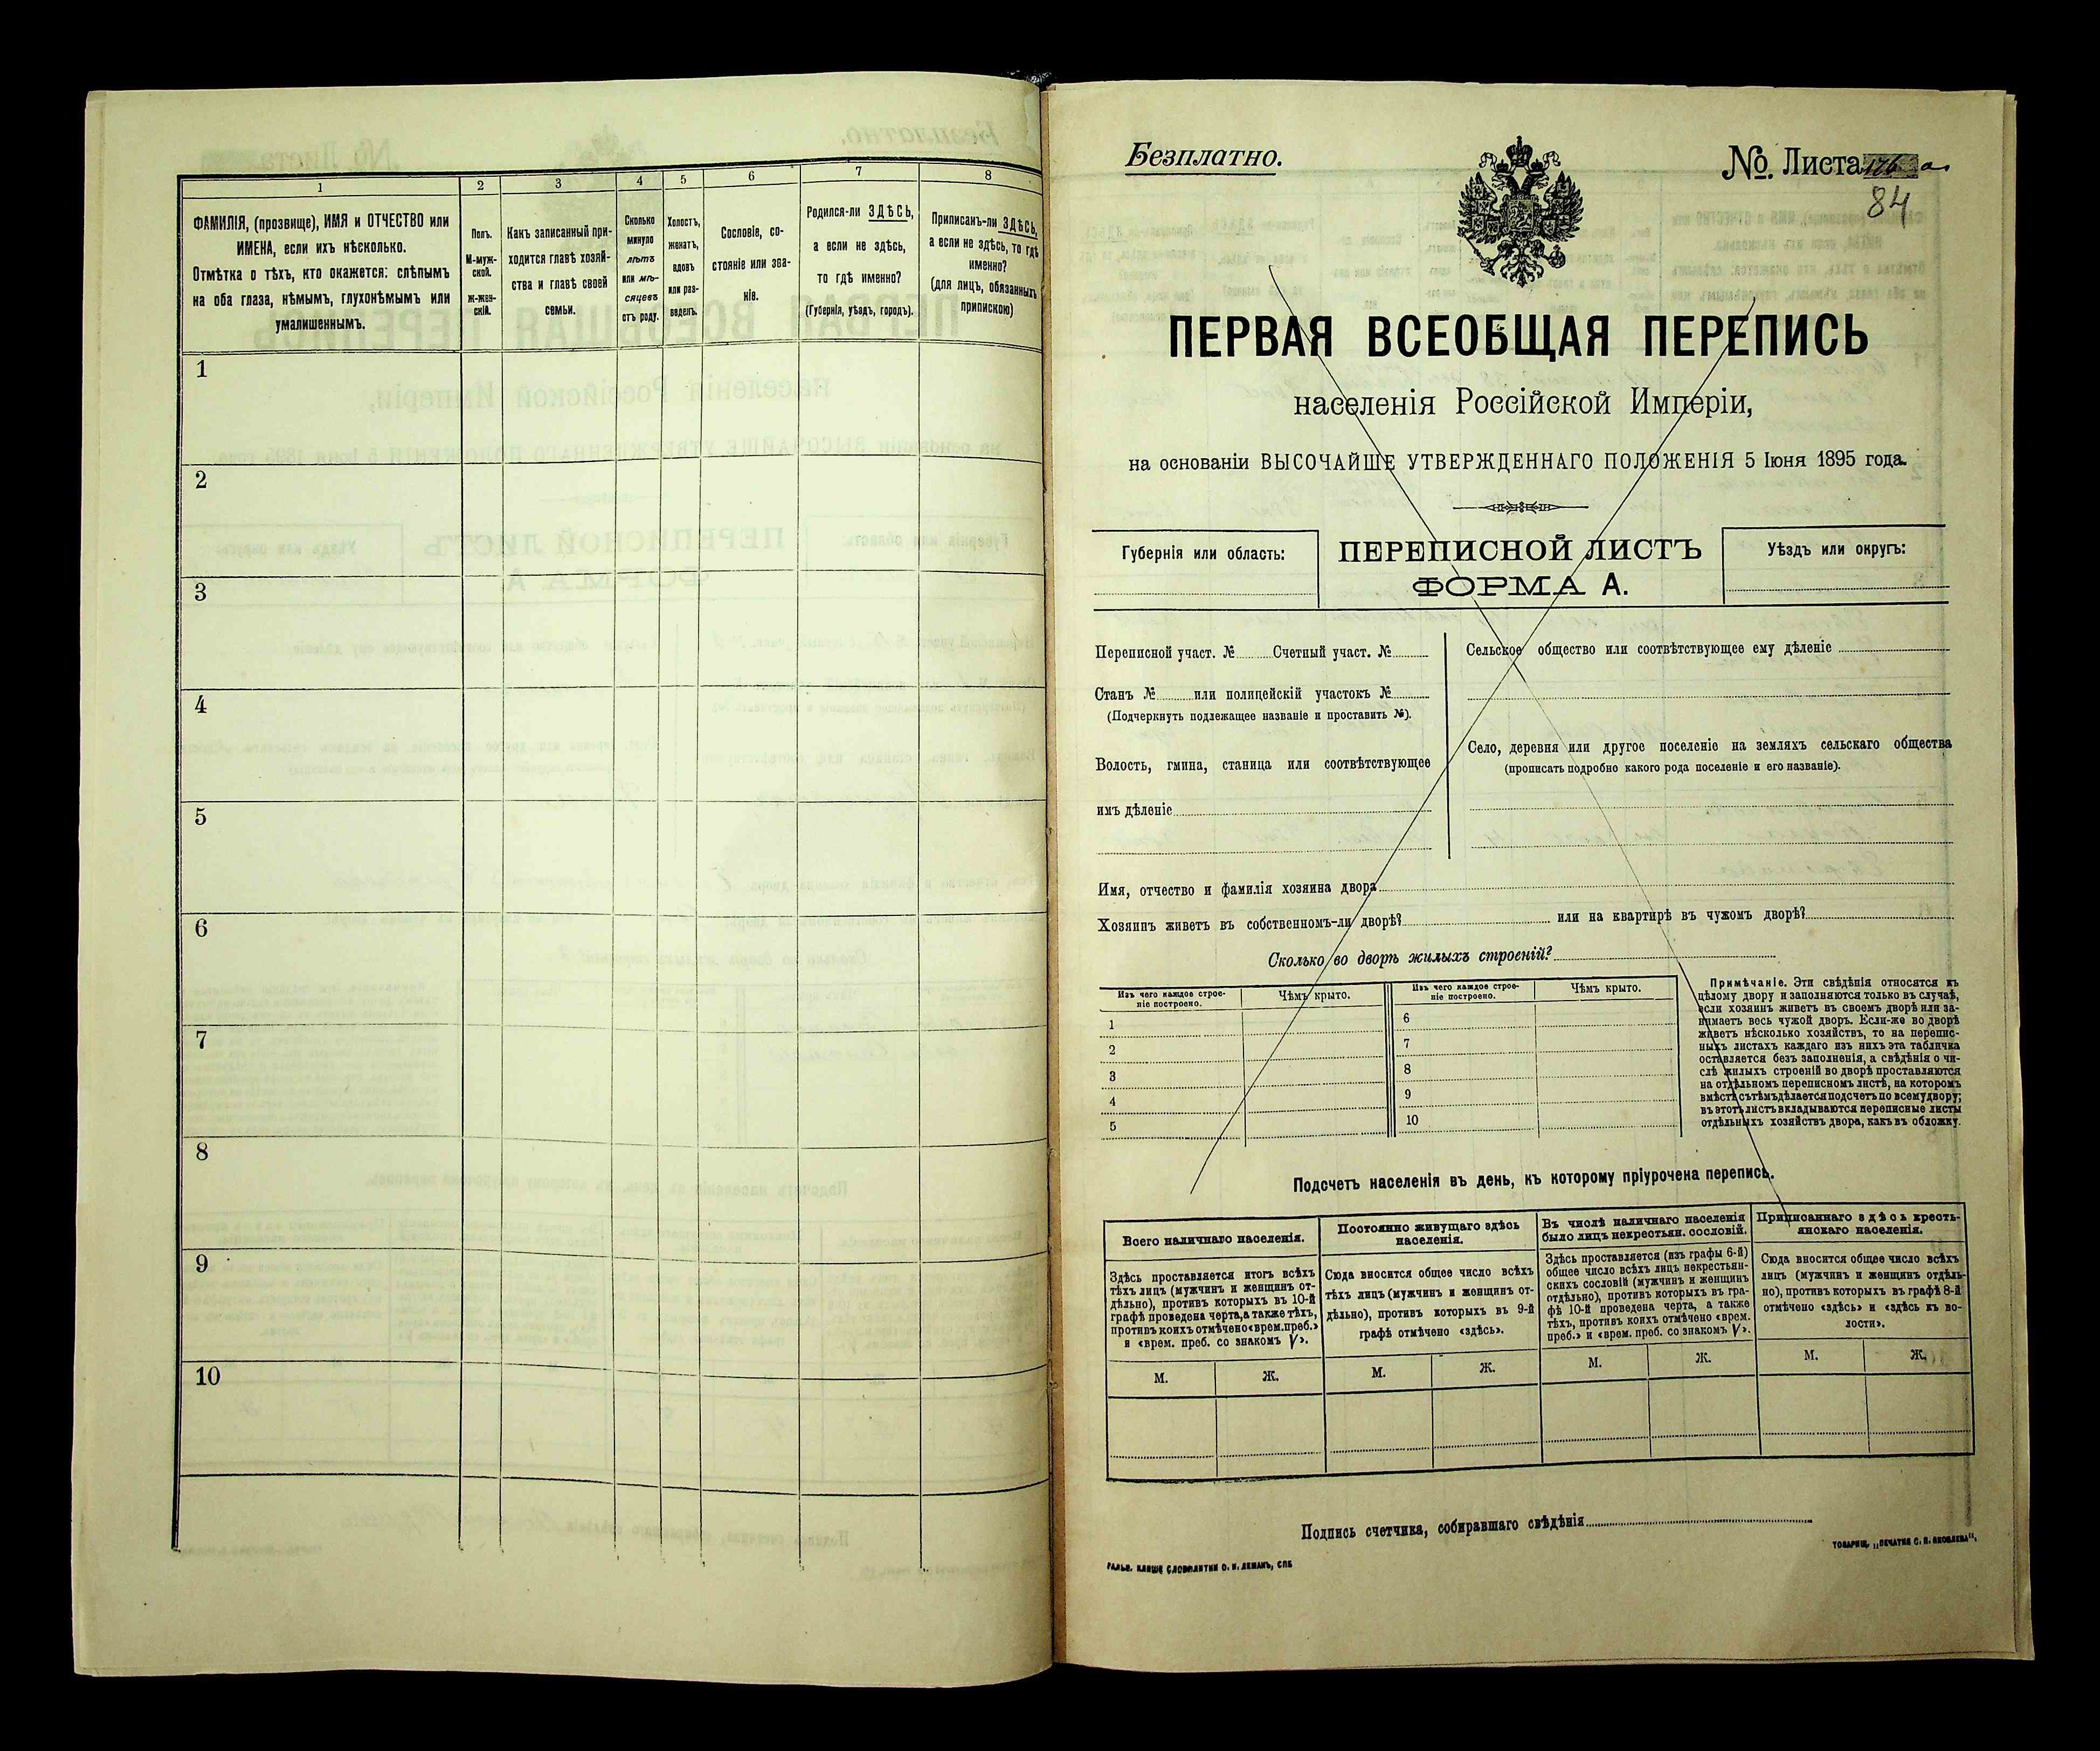 1
2
3
4
5
6
7
8
ФАМИЛІЯ, (прозвище), ИМЯ и ОТЧЕСТВО или
ИМЕНА, если ихъ нѣсколько.
Отмѣтка о тѣхъ, кто окажется: слѣпымъ
на оба глаза, нѣмымъ, глухонѣмымъ или
умалишеннымъ.
Полъ.
М-муж-
ской.
ж-жен-
скій.
Какъ записанный при-
ходится главѣ хозяй-
ства и главѣ своей
семьи.
Сколько
минуло
лѣтъ
или мѣ-
сяцевъ
отъ роду.
Холостъ,
женатъ,
вдовъ
или раз-
веденъ.
Сословіе, со-
стояніе или зва-
ніе.
Родился-ли ЗДѢСЬ,
а если не здѣсь,
то гдѣ именно?
(Губернія, уѣздъ, городъ).
Приписанъ-ли ЗДѢСЬ,
а если не здѣсь, то гдѣ
именно?
(для лицъ, обязанныхъ
припискою)
1
2
3
4
5
6
7
8
9
10
Безплатно.
№. Листа 176 а
84
ПЕРВАЯ ВСЕОБЩАЯ ПЕРЕПИСЬ
населенія Россійской Имперіи,
на основаніи ВЫСОЧАЙШЕ УТВЕРЖДЕННАГО ПОЛОЖЕНІЯ 5 Іюня 1895 года.
Губернія или область:
ПЕРЕПИСНОЙ ЛИСТЪ
ФОРМА А.
Уѣздъ или округъ:
Переписной участ. № Счетный участ. №
Станъ № или полицейскій участокъ №
(Подчеркнуть подлежащее названіе и проставить №).
Волость, гмина, станица или соотвѣтствующее
имъ дѣленіе
Сельское общество или соотвѣтствующее ему дѣленіе
Село, деревня или другое поселеніе на земляхъ сельскаго общества
(прописать подробно какого рода поселеніе и его названіе).
Имя, отчество и фамилія хозяина двора
Хозяинъ живетъ въ собственномъ-ли дворѣ? или на квартирѣ въ чужомъ дворѣ?
Сколько во дворѣ жилыхъ строеній?
Изъ чего каждое строе-
ніе построено.
Чѣмъ крыто.
Изъ чего каждое строе-
ніе построено.
Чѣмъ крыто.
1
2
3
4
5
6
7
8
9
10
Примѣчаніе. Эти свѣдѣнія относятся къ
цѣлому двору и заполняются только въ случаѣ,
если хозяинъ живетъ въ своемъ дворѣ или за-
нимаетъ весь чужой дворъ. Если-же во дворѣ
живетъ нѣсколько хозяйствъ, то на перепис-
ныхъ листахъ каждаго изъ нихъ эта табличка
оставляется безъ заполненія, а свѣдѣнія о чи-
слѣ жилыхъ строеній во дворѣ проставляются
на отдѣльномъ переписномъ листѣ, на которомъ
вмѣстѣ съ тѣмъ дѣлается подсчетъ по всему двору;
въ этотъ листъ вкладываются переписные листы
отдѣльныхъ хозяйствъ двора, какъ въ обложку.
Подсчетъ населенія въ день, къ которому пріурочена перепись.
Всего наличнаго населенія.
Здѣсь проставляется итогъ всѣхъ
тѣхъ лицъ (мужчинъ и женщинъ от-
дѣльно), противъ которыхъ въ 10-й
графѣ проведена черта, а также тѣхъ,
противъ коихъ отмѣчено «врем. преб.»
и «врем. преб. со знакомъ V».
Постоянно живущаго здѣсь
населенія.
Сюда вносится общее число всѣхъ
тѣхъ лицъ (мужчинъ и женщинъ от-
дѣльно), противъ которыхъ въ 9-й
графѣ отмѣчено «здѣсь».
Въ числѣ наличнаго населенія
было лицъ некрестьян. сословій.
Здѣсь проставляется (изъ графы 6-й)
общее число всѣхъ лицъ некрестьян-
скихъ сословій (мужчинъ и женщинъ
отдѣльно), противъ которыхъ въ гра-
фѣ 10-й проведена черта, а также
тѣхъ, противъ коихъ отмѣчено «врем.
преб.» и «врем. преб. со знакомъ V».
Приписаннаго здѣсь кресть-
янскаго населенія.
Сюда вносится общее число всѣхъ
лицъ (мужчинъ и женщинъ отдѣль-
но), противъ которыхъ въ графѣ 8-й
отмѣчено «здѣсь» и «здѣсь къ во-
лости».
М. Ж. М. Ж. М. Ж. М. Ж.
Подпись счетчика, собиравшаго свѣдѣнія
ГАЛЬВ. КЛИШЕ СЛОВОЛИТНИ О. И. ЛЕМАНЪ, СПБ
ТОВАРИЩ. „ПЕЧАТНЯ С. П. ЯКОВЛЕВА“.